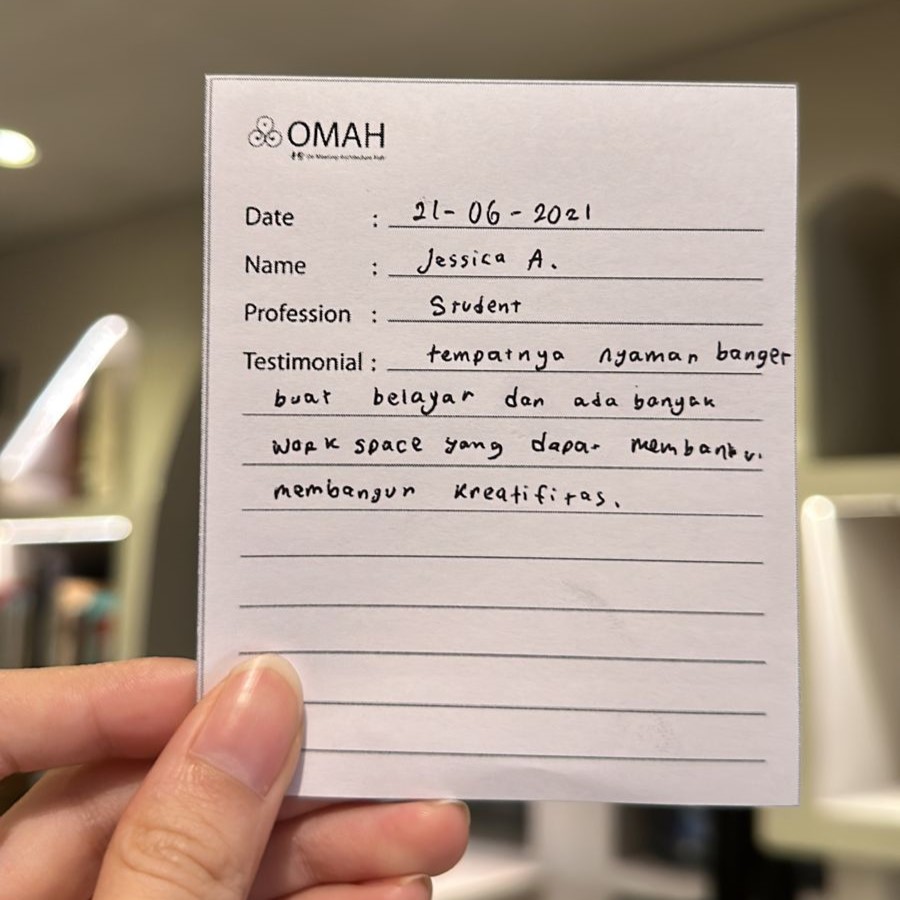 OMAH
Date : 21-06-2021
Name : Jessica A.
Profession : Student
Testimonial : tempatnya nyaman banget
buat belajar dan ada banyak
work space yang dapat membantu
membangun kreatifitas.